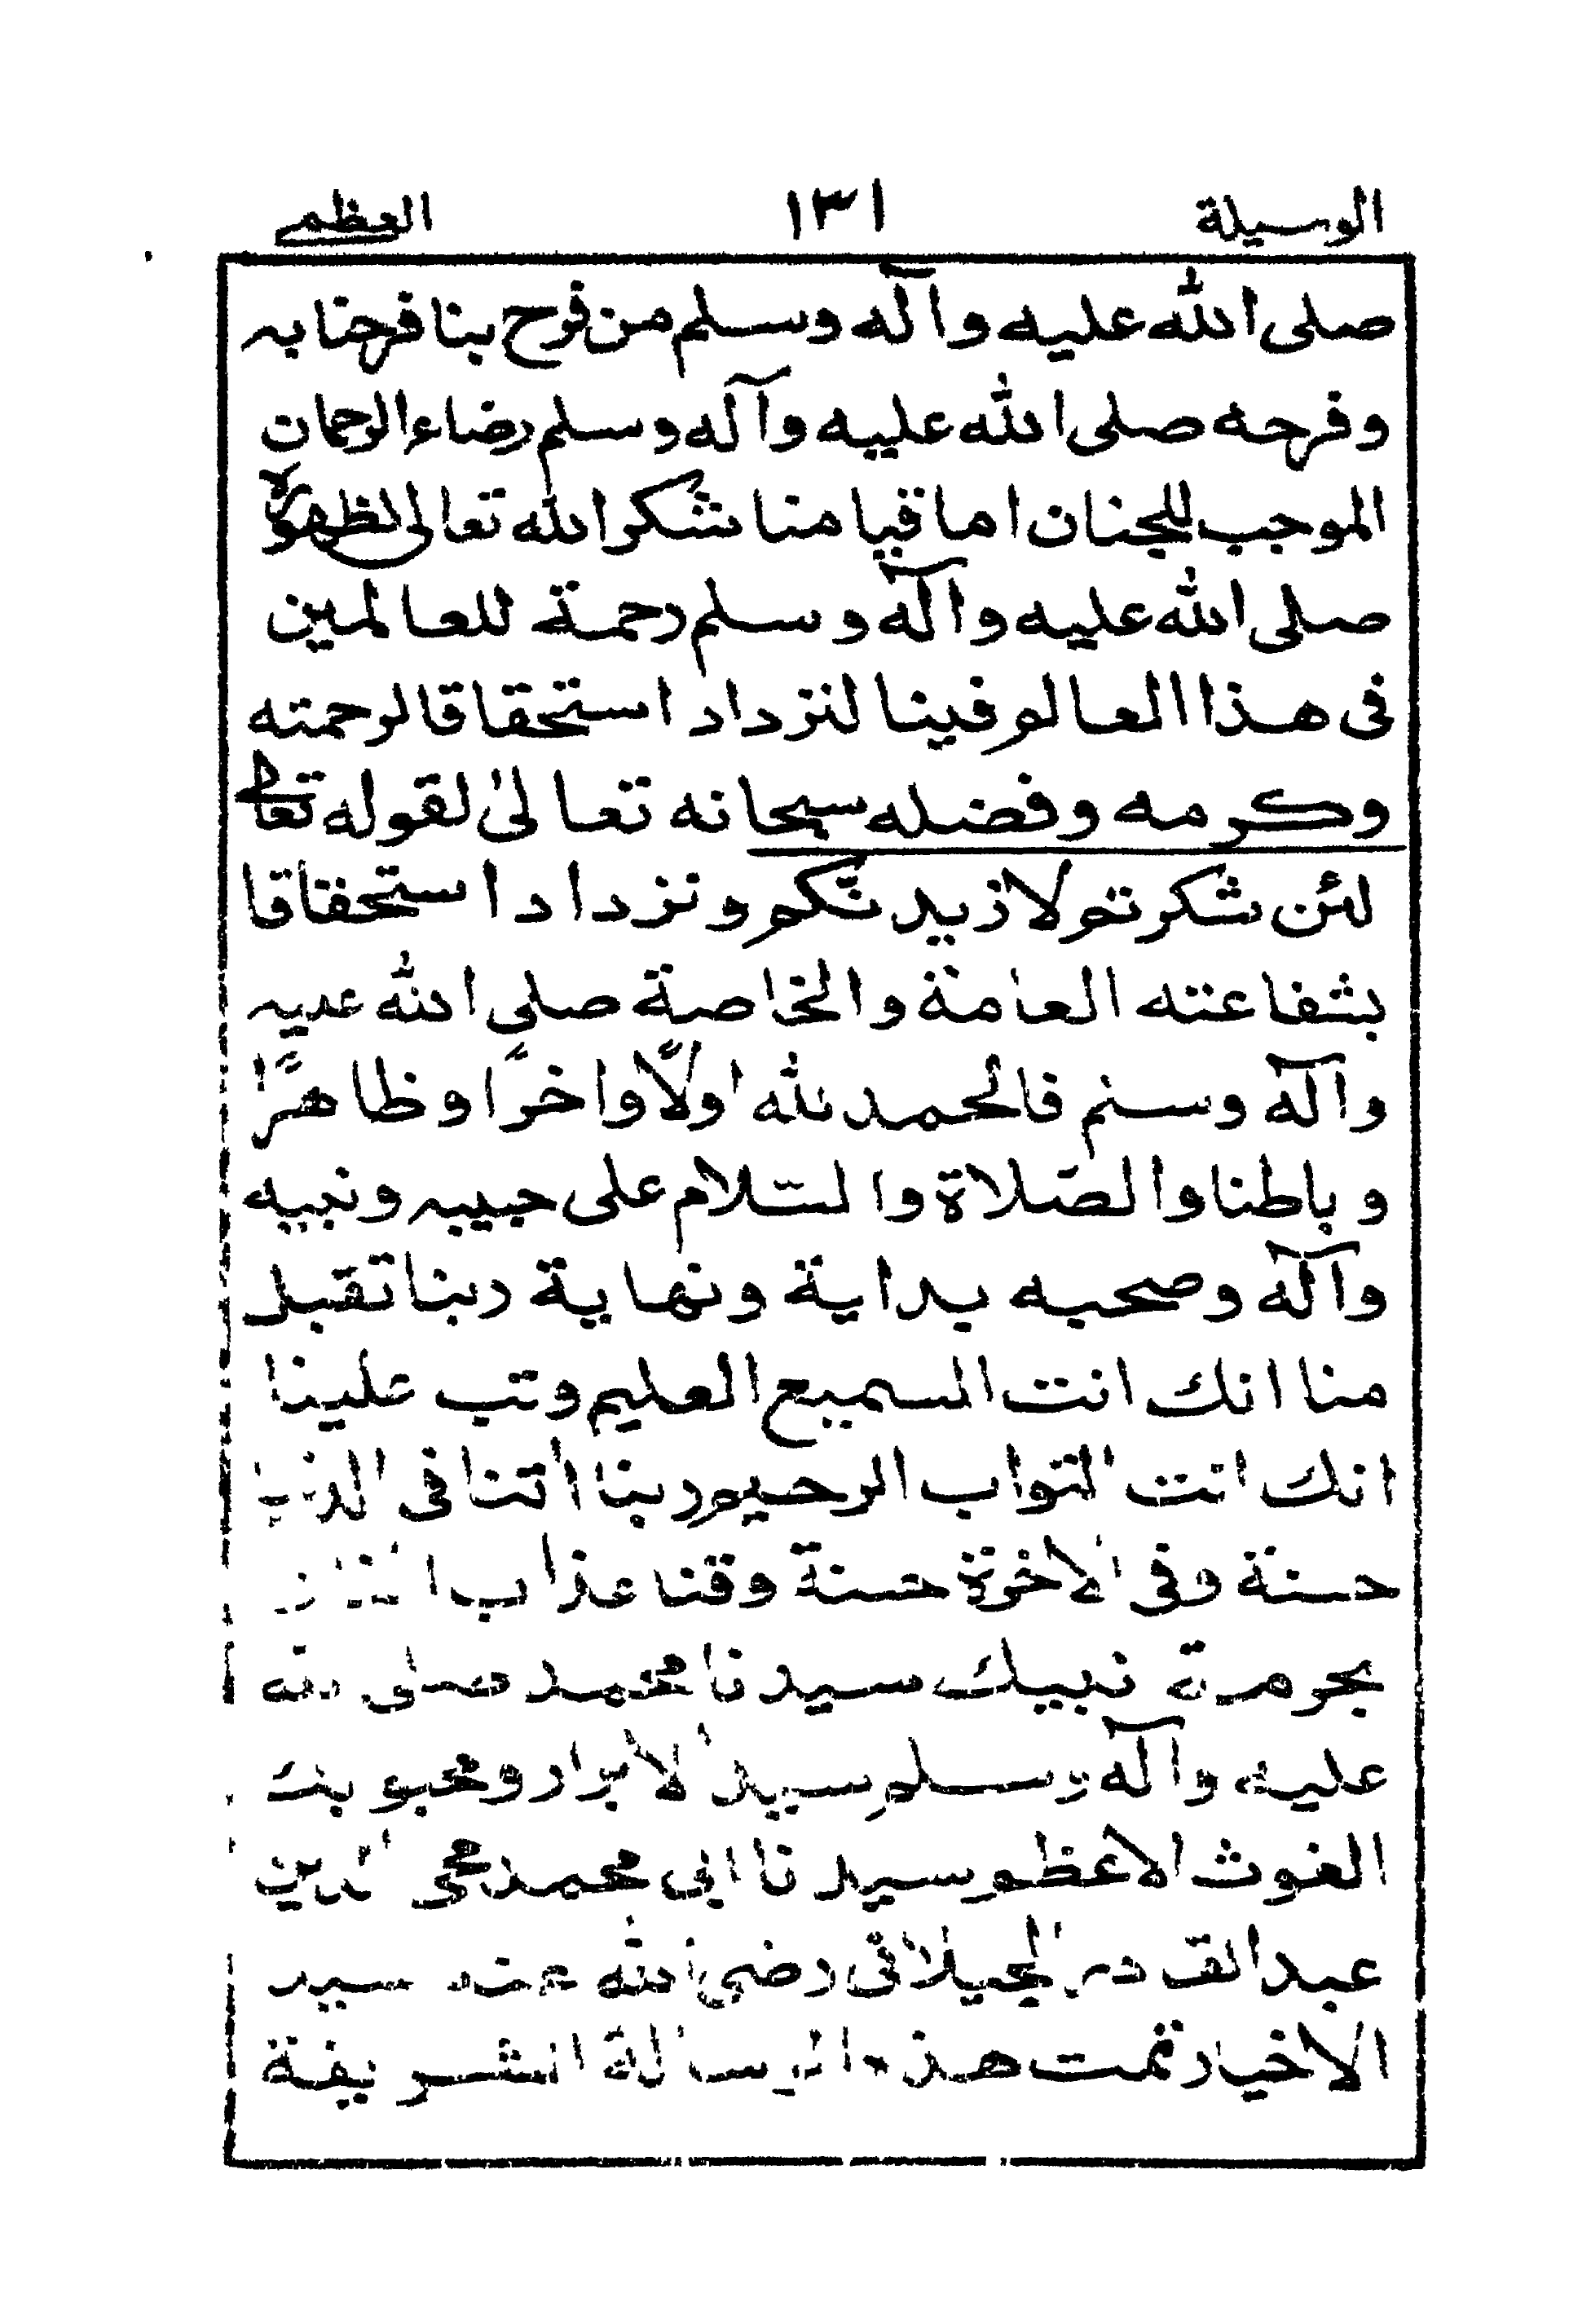 الوسيلة ١٣١ العظمى
صلى الله عليه وآله وسلم من فرح بنا فرحنا به
وفرحه صلى الله عليه وآله وسلم رضاء الرحمان
الموجب للجنان اما قيامنا شكرا لله تعالى لظهوره
صلى الله عليه وآله وسلم رحمة للعالمين
فى هذا العالم فينا لنزداد استحقاقا لرحمته
وكرمه وفضله سبحانه تعالىٰ لقوله تعالى
لئن شكرتم لازيدنّكم ونزداد استحقاقا
بشفاعته العامة والخاصة صلى الله عليه
وآله وسلم فالحمد لله اولًا واخرًا وظاهرًا
وباطنا والصّلاة والسّلام على حبيبه ونبيه
وآله وصحبه بداية ونهاية ربنا تقبل
منا انك انت السميع العليم وتب علينا
انك انت التواب الرحيم ربنا اتنا فى الدنيا
حسنة وفى الاخرة حسنة وقنا عذاب النار
بحرمة نبيك سيدنا محمد صلى الله
عليه وآله وسلم سيد الابرار ومحبوبك
الغوث الاعظم سيدنا ابى محمد محى الدين
عبد القادر الجيلانى رضى الله عنه سيد
الاخيار تمت هذه الرسالة الشريفة